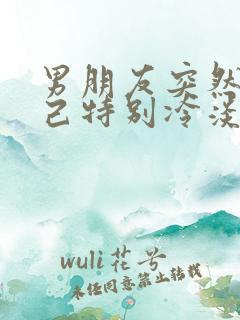 男朋友突然
己特别冷淡
wuli花兮
未经同意禁止转载